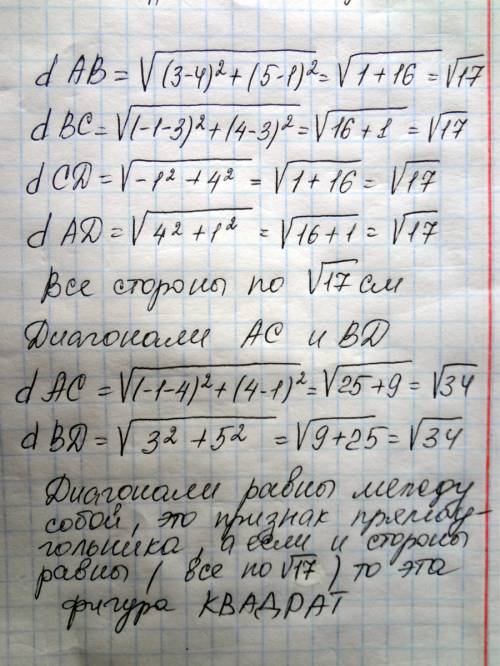 d AB = √(3-4)² + (5-1)² = √1+16 = √17
d BC = √(-1-3)² + (4-3)² = √16+1 = √17
d CD = √-1² + 4² = √1+16 = √17
d AD = √4² + 1² = √16+1 = √17
Все стороны по √17 см
Диагонали AC и BD
d AC = √(-1-4)² + (4-1)² = √25+9 = √34
d BD = √3² + 5² = √9+25 = √34
Диагонали равны между
собой, это признак прямоу-
гольника, а если и стороны
равны ( все по √17 ) то эта
фигура КВАДРАТ